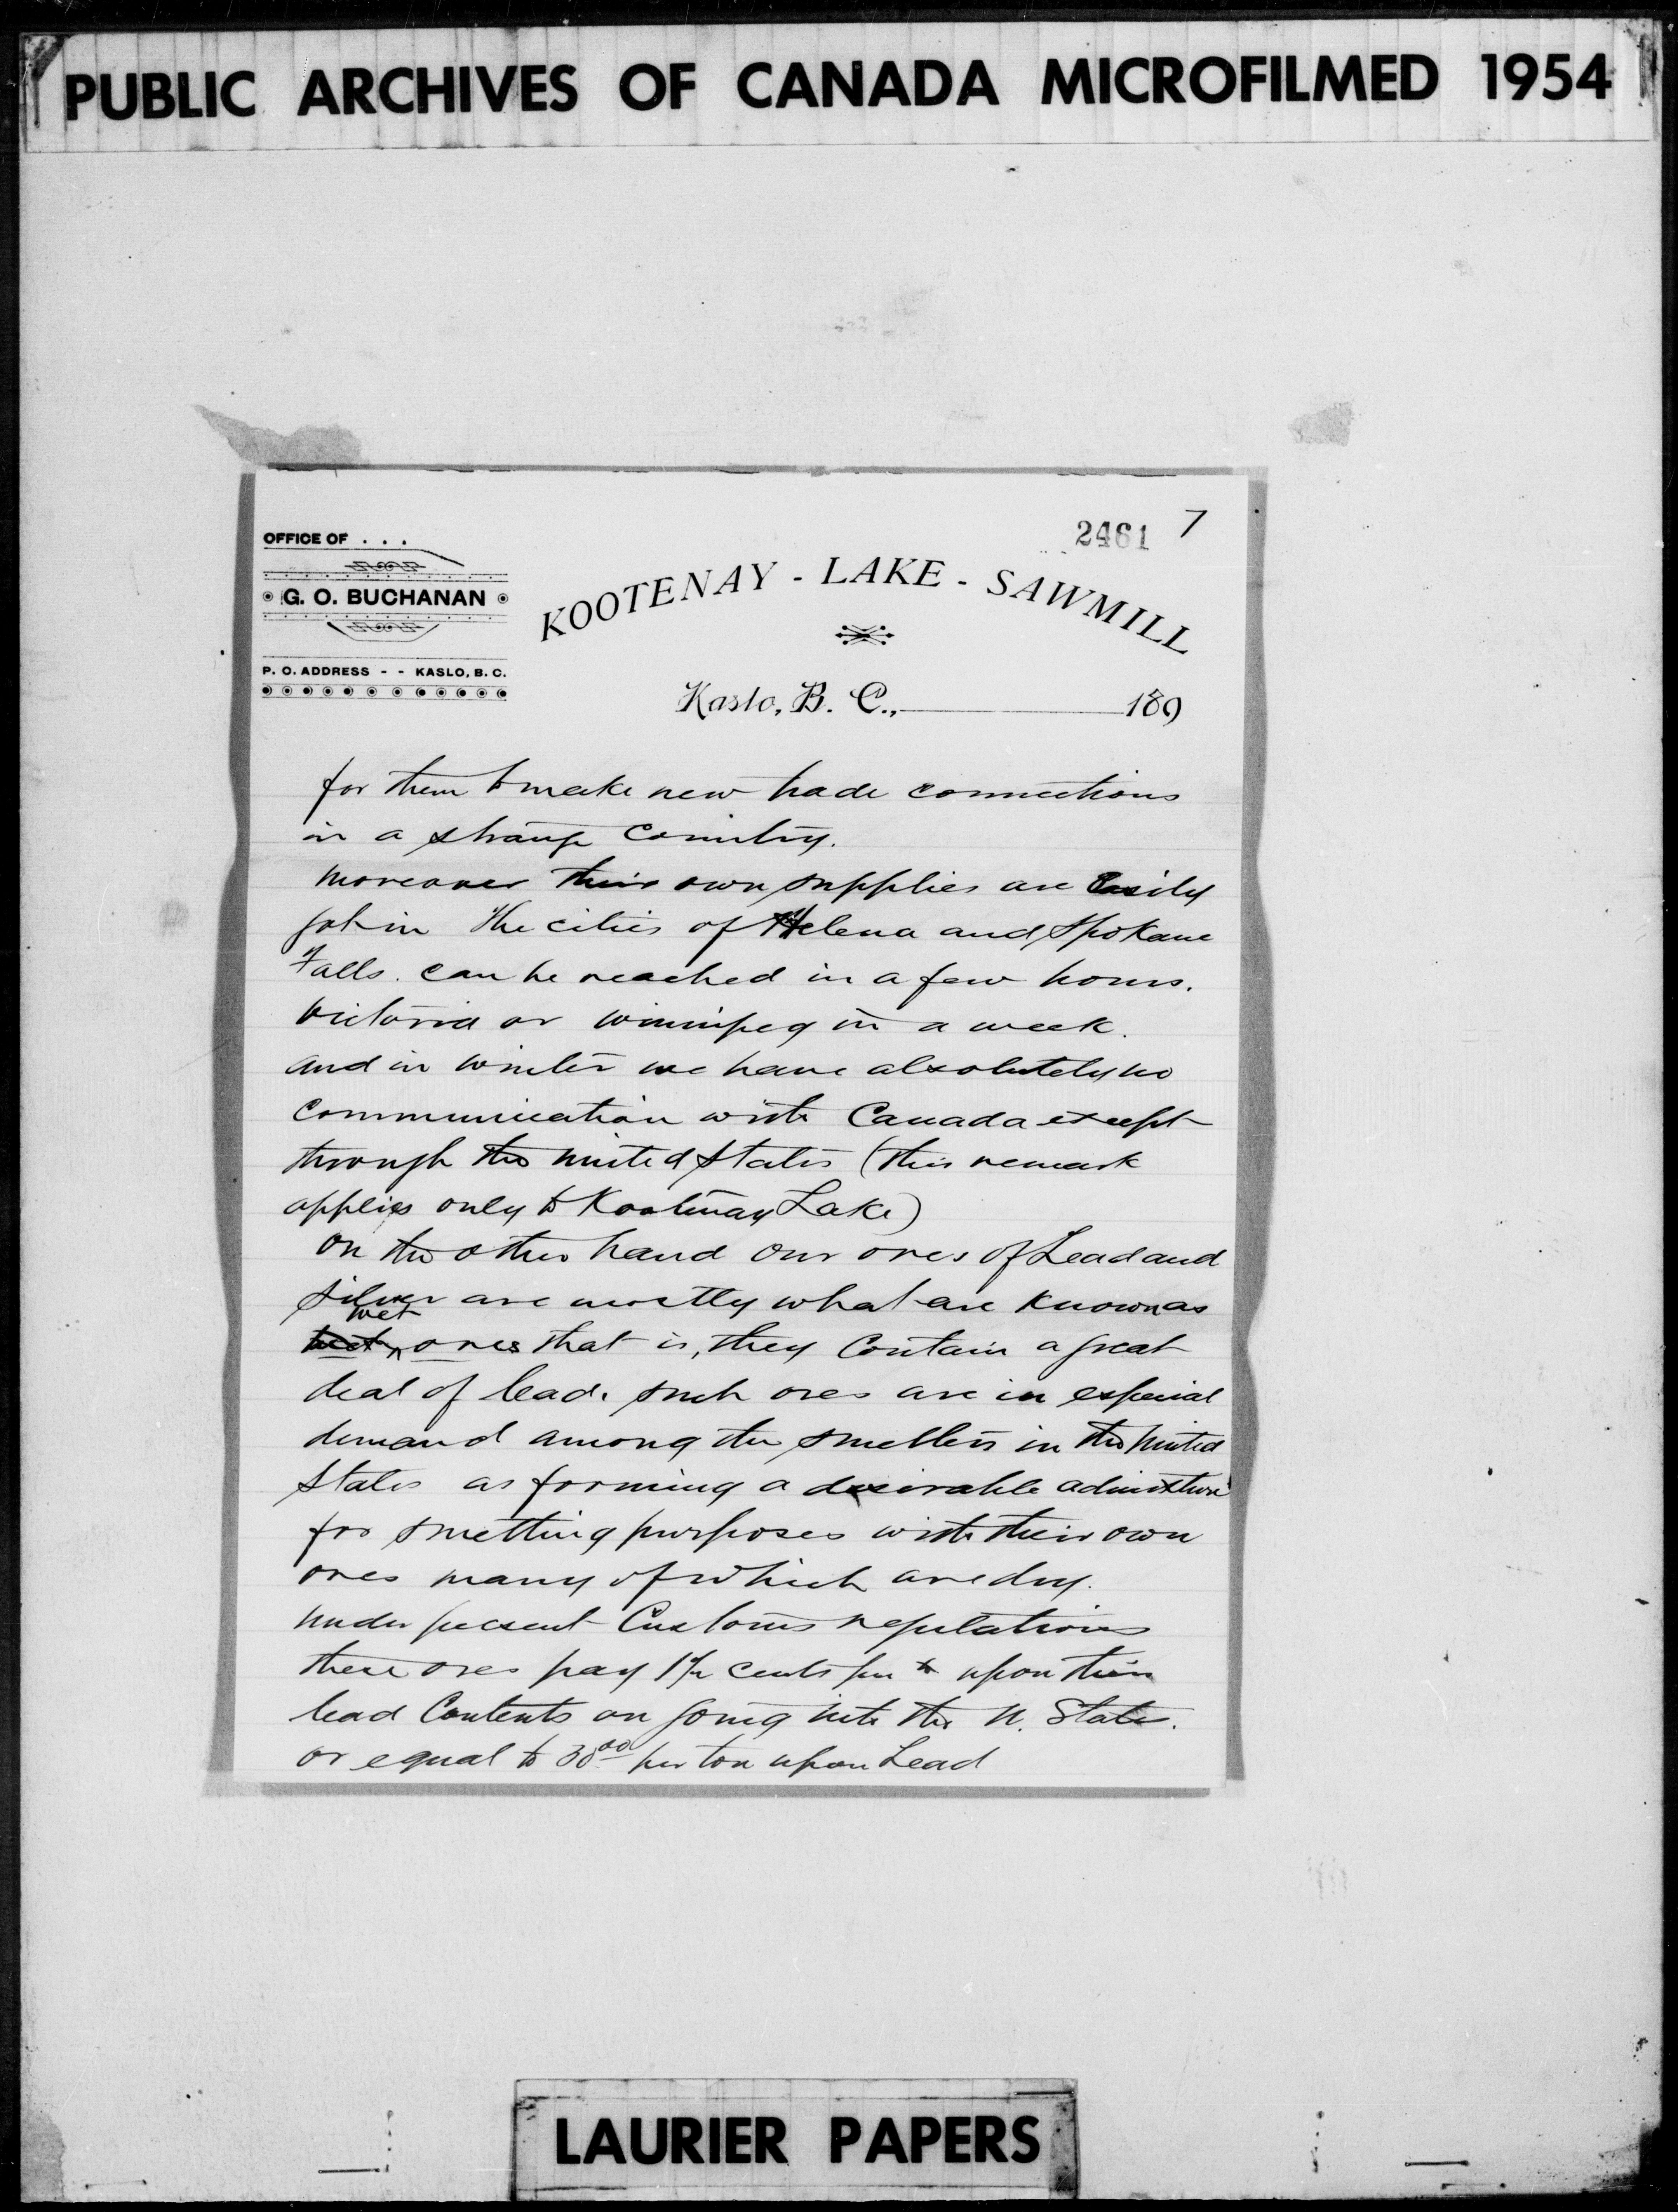 PUBLIC ARCHIVES OF CANADA MICROFILMED 1954
2461 7
OFFICE OF . . .
G. O. BUCHANAN
P. O. ADDRESS - - KASLO, B. C.
KOOTENAY - LAKE - SAWMILL
Kaslo, B. C., 189
for them to make new trade connections
in a strange country.
Moreover their own supplies are easily
got in The cities of Helena and Spokane
Falls. can be reached in a few hours.
Victoria or Winnipeg in a week.
and in winter we have absolutely no
communication with Canada except
through the United States (this remark
applies only to Kootenay Lake)
On the other hand our ores of Lead and
silver are mostly what are known as
wet
ores that is, they Contain a great
deal of lead. such ores are in especial
demand among the smelters in the United
States as forming a desirable admixture
for smelting purposes with their own
ores many of which are dry.
Under present Customs regulations
these ores pay 1½ cents per lb upon their
lead Contents on going into the U. States.
or equal to 30.00 per ton upon Lead
LAURIER PAPERS